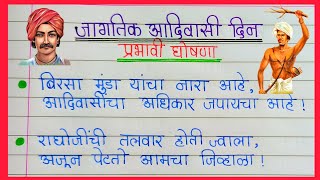 जागतिक आदिवासी दिन
प्रभावी घोषणा
बिरसा मुंडा यांचा नारा आहे,
आदिवासींचा अधिकार जपायचा आहे!
राघोजींची तलवार होती ज्वाला,
अजून पेटतो आमचा जिव्हाळा!